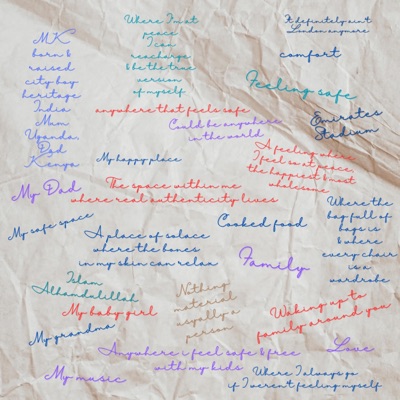 MK
born &
raised
city boy
heritage
India
Mum
Uganda.
Dad
Kenya
Where I'm at
peace
I can
reacharge
& be the true
version
of myself.
It definitely ain't
London anymore
comfort
Feeling safe
anywhere that feels safe
Could be anywhere
in the world
Emirates
Stadium
My happy place
A feeling where
I feel so at peace,
the happiest & most
wholesome
My Dad
The space within me
where real authenticity lives
My safe space
A place of solace
where the bones
in my skin can relax
Cooked food
Where the
bag full of
bags is
& where
every chair
is a
wardrobe
Family
Islam
Alhamdulillah
My baby girl
Nothing
material
usually a
person
Waking up to
family around you
My grandma
Anywhere i feel safe & free
with my kids
Love
My music
Where I always go
if I weren't feeling myself